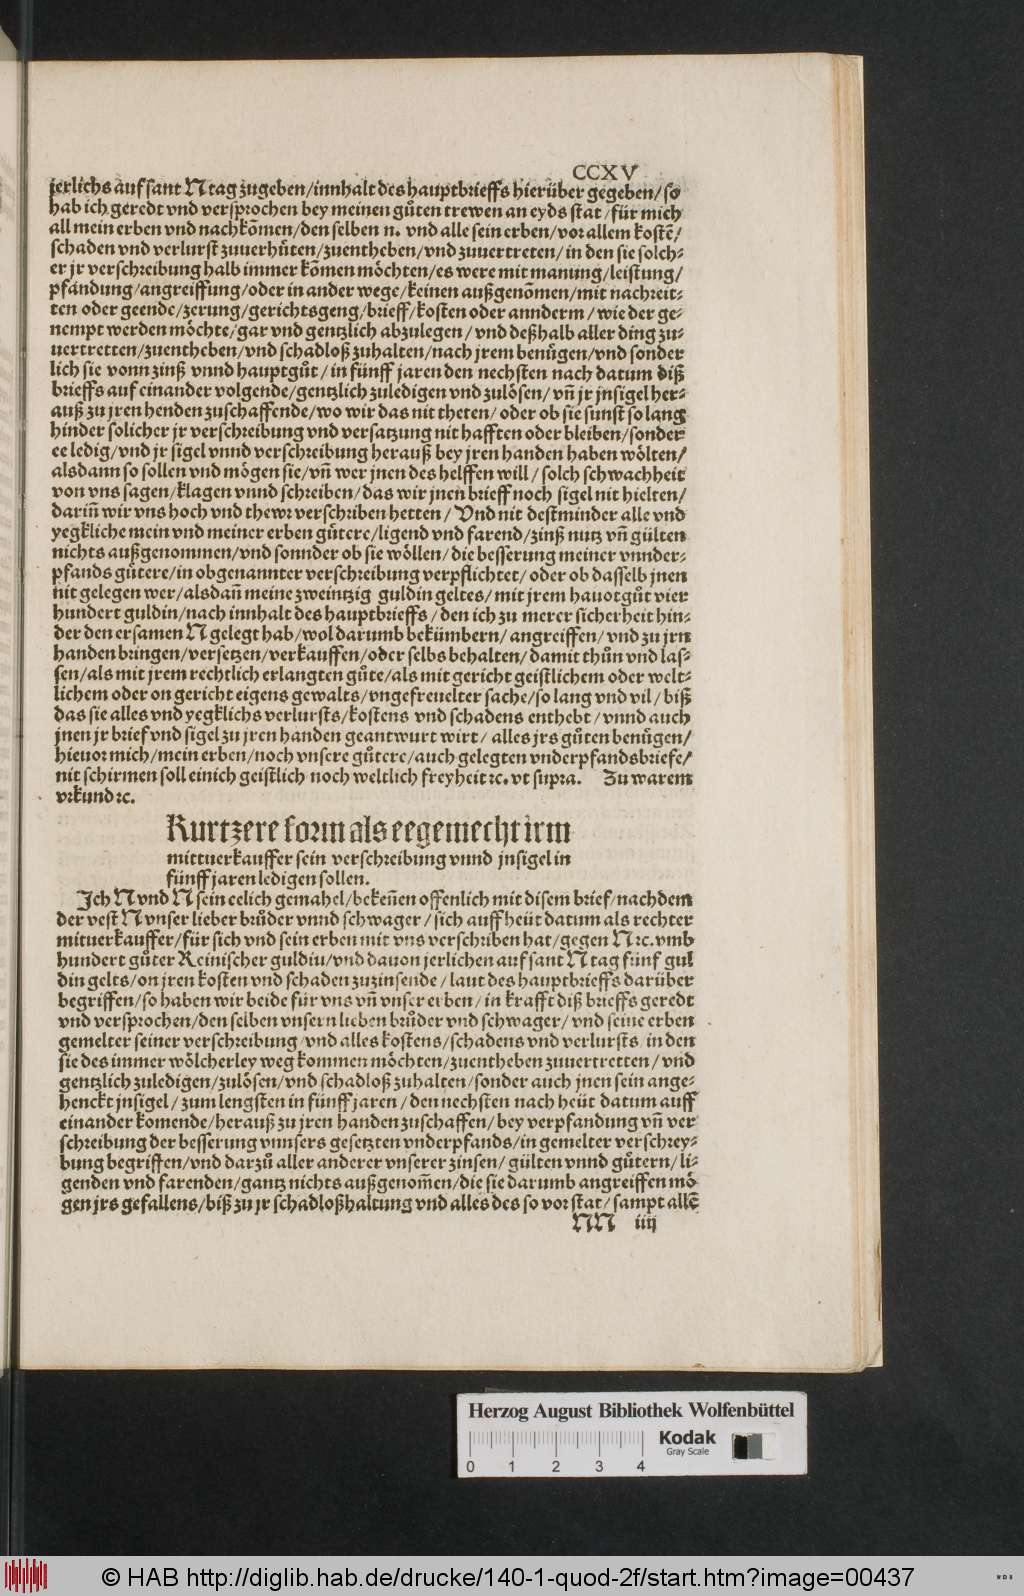 CCXV
jerlichs auf sant N tag zugeben/innhalt des hauptbrieffs hierüber gegeben/so
hab ich geredt vnd versprochen bey meinen gůten trewen an eyds stat/für mich
all mein erben vnd nachkōmen/den selben n. vnd alle sein erben/vor allem kostē/
schaden vnd verlurst zuuerhůten/zuentheben/vnd zuuertreten/in den sie solch⸗
er jr verschreibung halb immer kōmen möchten/es were mit manung/leistung/
pfandung/angreiffung/oder in ander wege/keinen außgenōmen/mit nachreit⸗
ten oder geende/zerung/gerichtsgeng/brieff/kosten oder annderm/wie der ge⸗
nempt werden möchte/gar vnd gentzlich abzulegen/vnd deßhalb aller ding zu⸗
uertretten/zuentheben/vnd schadloß zuhalten/nach jrem benůgen/vnd sonder
lich sie vonn zinß vnnd hauptgůt/in fünff jaren den nechsten nach datum diß
brieffs auf einander volgende/gentzlich zuledigen vnd zulösen/vn̄ jr jnsigel her⸗
auß zu jren henden zuschaffende/wo wir das nit theten/oder ob sie sunst so lang
hinder solicher jr verschreibung vnd versatzung nit hafften oder bleiben/sonder
ee ledig/vnd jr sigel vnnd verschreibung herauß bey jren handen haben wölten/
alsdann so sollen vnd mögen sie/vn̄ wer jnen des helffen will/solch schwachheit
von vns sagen/klagen vnnd schreiben/das wir jnen brieff noch sigel nit hielten/
darin̄ wir vns hoch vnd thewr verschriben hetten/Vnd nit destminder alle vnd
yegkliche mein vnd meiner erben gůtere/ligend vnd farend/zinß nutz vn̄ gülten
nichts außgenommen/vnd sonnder ob sie wöllen/die besserung meiner vnnder⸗
pfands gůtere/in obgenannter verschreibung verpflichtet/oder ob dasselb jnen
nit gelegen wer/alsdan̄ meine zweintzig guldin geltes/mit jrem hauotgůt vier
hundert guldin/nach innhalt des hauptbrieffs/den ich zu merer sicherheit hin⸗
der den ersamen N gelegt hab/wol darumb bekümbern/angreiffen/vnd zu jrn
handen bringen/versetzen/verkauffen/oder selbs behalten/damit thůn vnd las⸗
sen/als mit jrem rechtlich erlangten gůte/als mit gericht geistlichem oder welt⸗
lichem oder on gericht eigens gewalts/vngefreuelter sache/so lang vnd vil/biß
das sie alles vnd yegklichs verlursts/kostens vnd schadens enthebt/vnnd auch
jnen jr brief vnd sigel zu jren handen geantwurt wirt/alles jrs gůten benůgen/
hieuor mich/mein erben/noch vnsere gůtere/auch gelegten vnderpfandsbriefe/
nit schirmen soll einich geistlich noch weltlich freyheit ꝛc. vt supra. Zu warem
vrkund ꝛc.
Kurtzere form als eegemecht irm
mittuerkauffer sein verschreibung vnnd jnsigel in
fünff jaren ledigen sollen.
Ich N vnd N sein eelich gemahel/beken̄en offenlich mit disem brief/nachdem
der vest N vnser lieber brůder vnnd schwager/sich auff heüt datum als rechter
mituerkauffer/für sich vnd sein erben mit vns verschriben hat/gegen N ꝛc. vmb
hundert gůter Reinischer guldin/vnd dauon jerlichen auf sant N tag fünf gul
din gelts/on jren kosten vnd schaden zuzinsende/laut des hauptbrieffs darüber
begriffen/so haben wir beide für vns vn̄ vnser erben/in krafft diß brieffs geredt
vnd versprochen/den selben vnsern lieben brůder vnd schwager/vnd seine erben
gemelter seiner verschreibung/vnd alles kostens/schadens vnd verlursts/in den
sie des immer wölcherley weg kommen möchten/zuentheben zuuertretten/vnd
gentzlich zuledigen/zulösen/vnd schadloß zuhalten/sonder auch jnen sein ange⸗
henckt jnsigel/zum lengsten in fünff jaren/den nechsten nach heüt datum auff
einander komende/herauß zu jren handen zuschaffen/bey verpfandung vn̄ ver
schreibung der besserung vnnsers gesetzten vnderpfands/in gemelter verschrey⸗
bung begriffen/vnd darzů aller anderer vnserer zinsen/gülten vnnd gůtern/li⸗
genden vnd farenden/gantz nichts außgenom̄en/die sie darumb angreiffen mö
gen jrs gefallens/biß zu jr schadloßhaltung vnd alles des so vor stat/sampt allē
NN iiij
Herzog August Bibliothek Wolfenbüttel
Kodak
Gray Scale
0 1 2 3 4
© HAB http://diglib.hab.de/drucke/140-1-quod-2f/start.htm?image=00437